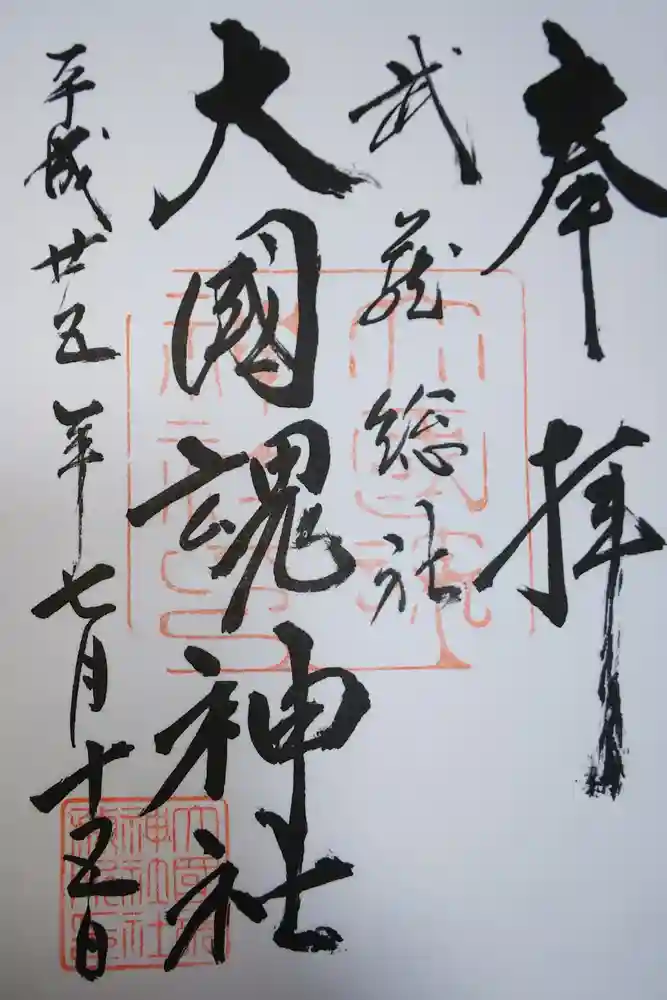 奉拝
武蔵総社
大國魂神社
平成廿五年七月十五日